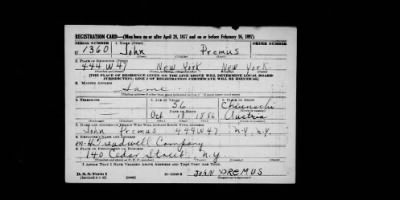 REGISTRATION CARD—(Men born on or after April 28, 1877 and on or before February 16, 1897)
SERIAL NUMBER 1. NAME (Print) ORDER NUMBER
U 1360 John Premus
2. PLACE OF RESIDENCE (Print)
444 W 47 New York New York
[THE PLACE OF RESIDENCE GIVEN ON THE LINE ABOVE WILL DETERMINE LOCAL BOARD
JURISDICTION; LINE 2 OF REGISTRATION CERTIFICATE WILL BE IDENTICAL]
3. MAILING ADDRESS
Same
4. TELEPHONE 5. AGE IN YEARS 6. PLACE OF BIRTH
56
DATE OF BIRTH
Oct 18 1886 Austria
7. NAME AND ADDRESS OF PERSON WHO WILL ALWAYS KNOW YOUR ADDRESS
John Premus 444 W 47 N.Y. N.Y.
8. EMPLOYER'S NAME AND ADDRESS
Treadwell Company
9. PLACE OF EMPLOYMENT OR BUSINESS
140 Cedar Street N.Y.
I AFFIRM THAT I HAVE VERIFIED ABOVE ANSWERS AND THAT THEY ARE TRUE.
D. S. S. Form 1 JOHN PREMUS